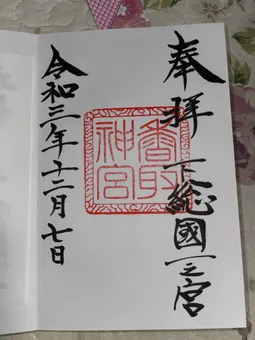 奉拝
下総國一之宮
香取神宮
令和三年十二月七日